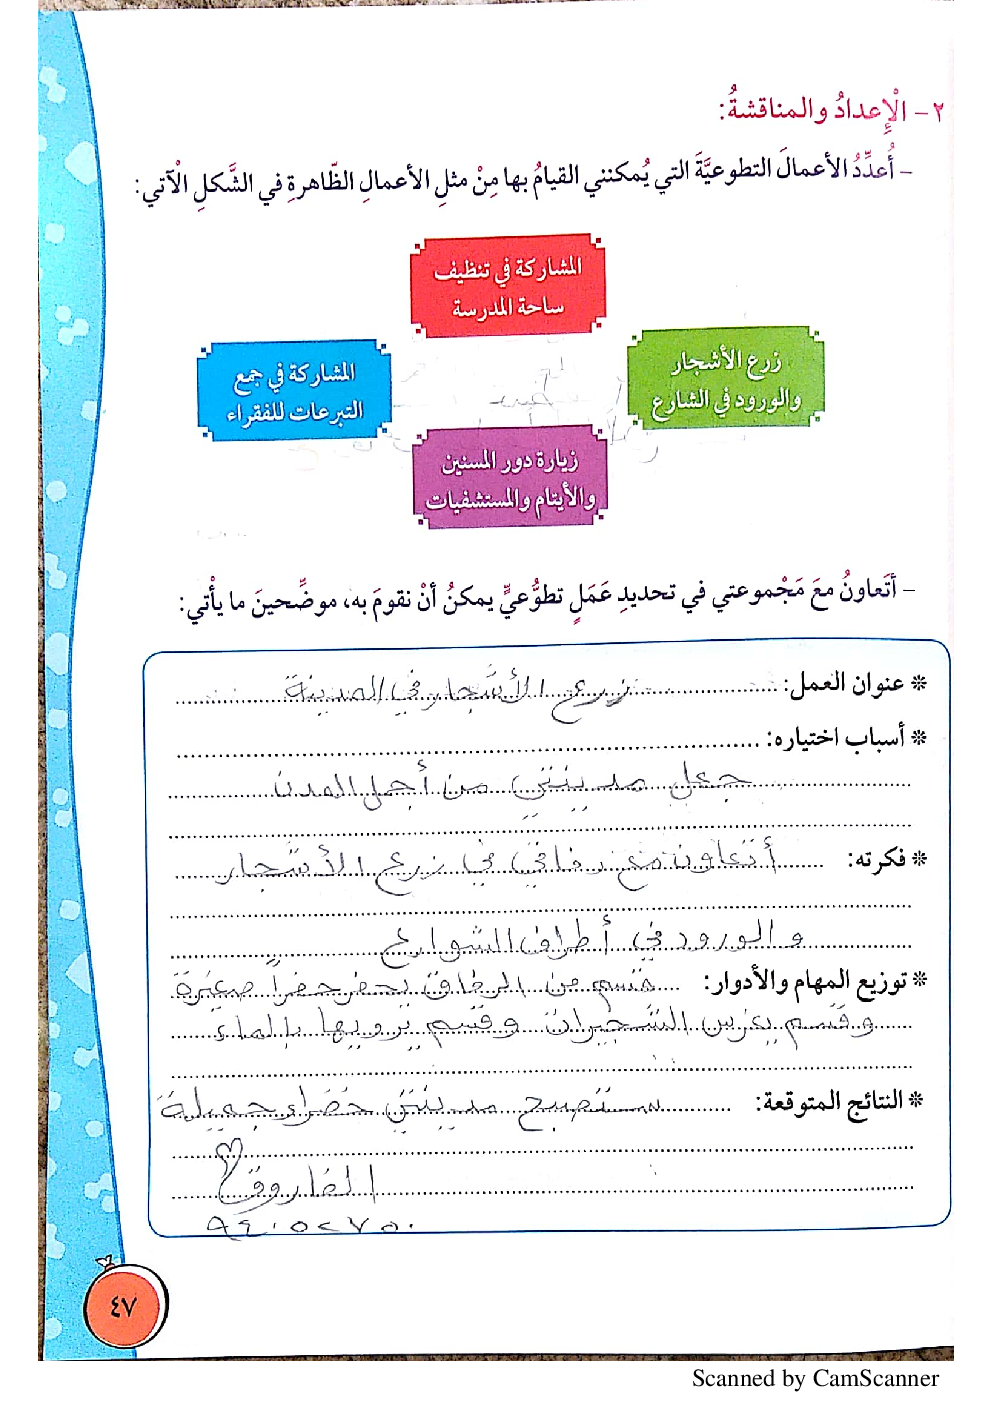 ٢ - الْإِعدادُ والمناقشةُ:
- أُعدِّدُ الأعمالَ التطوعيَّةَ التي يُمكنني القيامُ بها مِنْ مثلِ الأعمالِ الظّاهرةِ في الشَّكلِ الآتي:
المشاركة في تنظيف
ساحة المدرسة
زرع الأشجار
والورود في الشارع
المشاركة في جمع
التبرعات للفقراء
زيارة دور المسنين
والأيتام والمستشفيات
- أتَعاونُ معَ مَجْموعتي في تحديدِ عَمَلٍ تطوُّعيٍّ يمكنُ أنْ نقومَ به، موضِّحينَ ما يأْتي:
* عنوان العمل: زرع الأشجار في المدينة
* أسباب اختياره:
جعل مدينتي من أجمل المدن
* فكرته: أتعاون مع رفاقي في زرع الأشجار
والورود في أطراف الشوارع
* توزيع المهام والأدوار: قسم من الرفاق يحفر حفراً صغيرة
وقسم يغرس الشجيرات وقسم يرويها بالماء
* النتائج المتوقعة: ستصبح مدينتي خضراء جميلة
الفاروق
٩٤٠٥٢٧٥٠
٤٧
Scanned by CamScanner